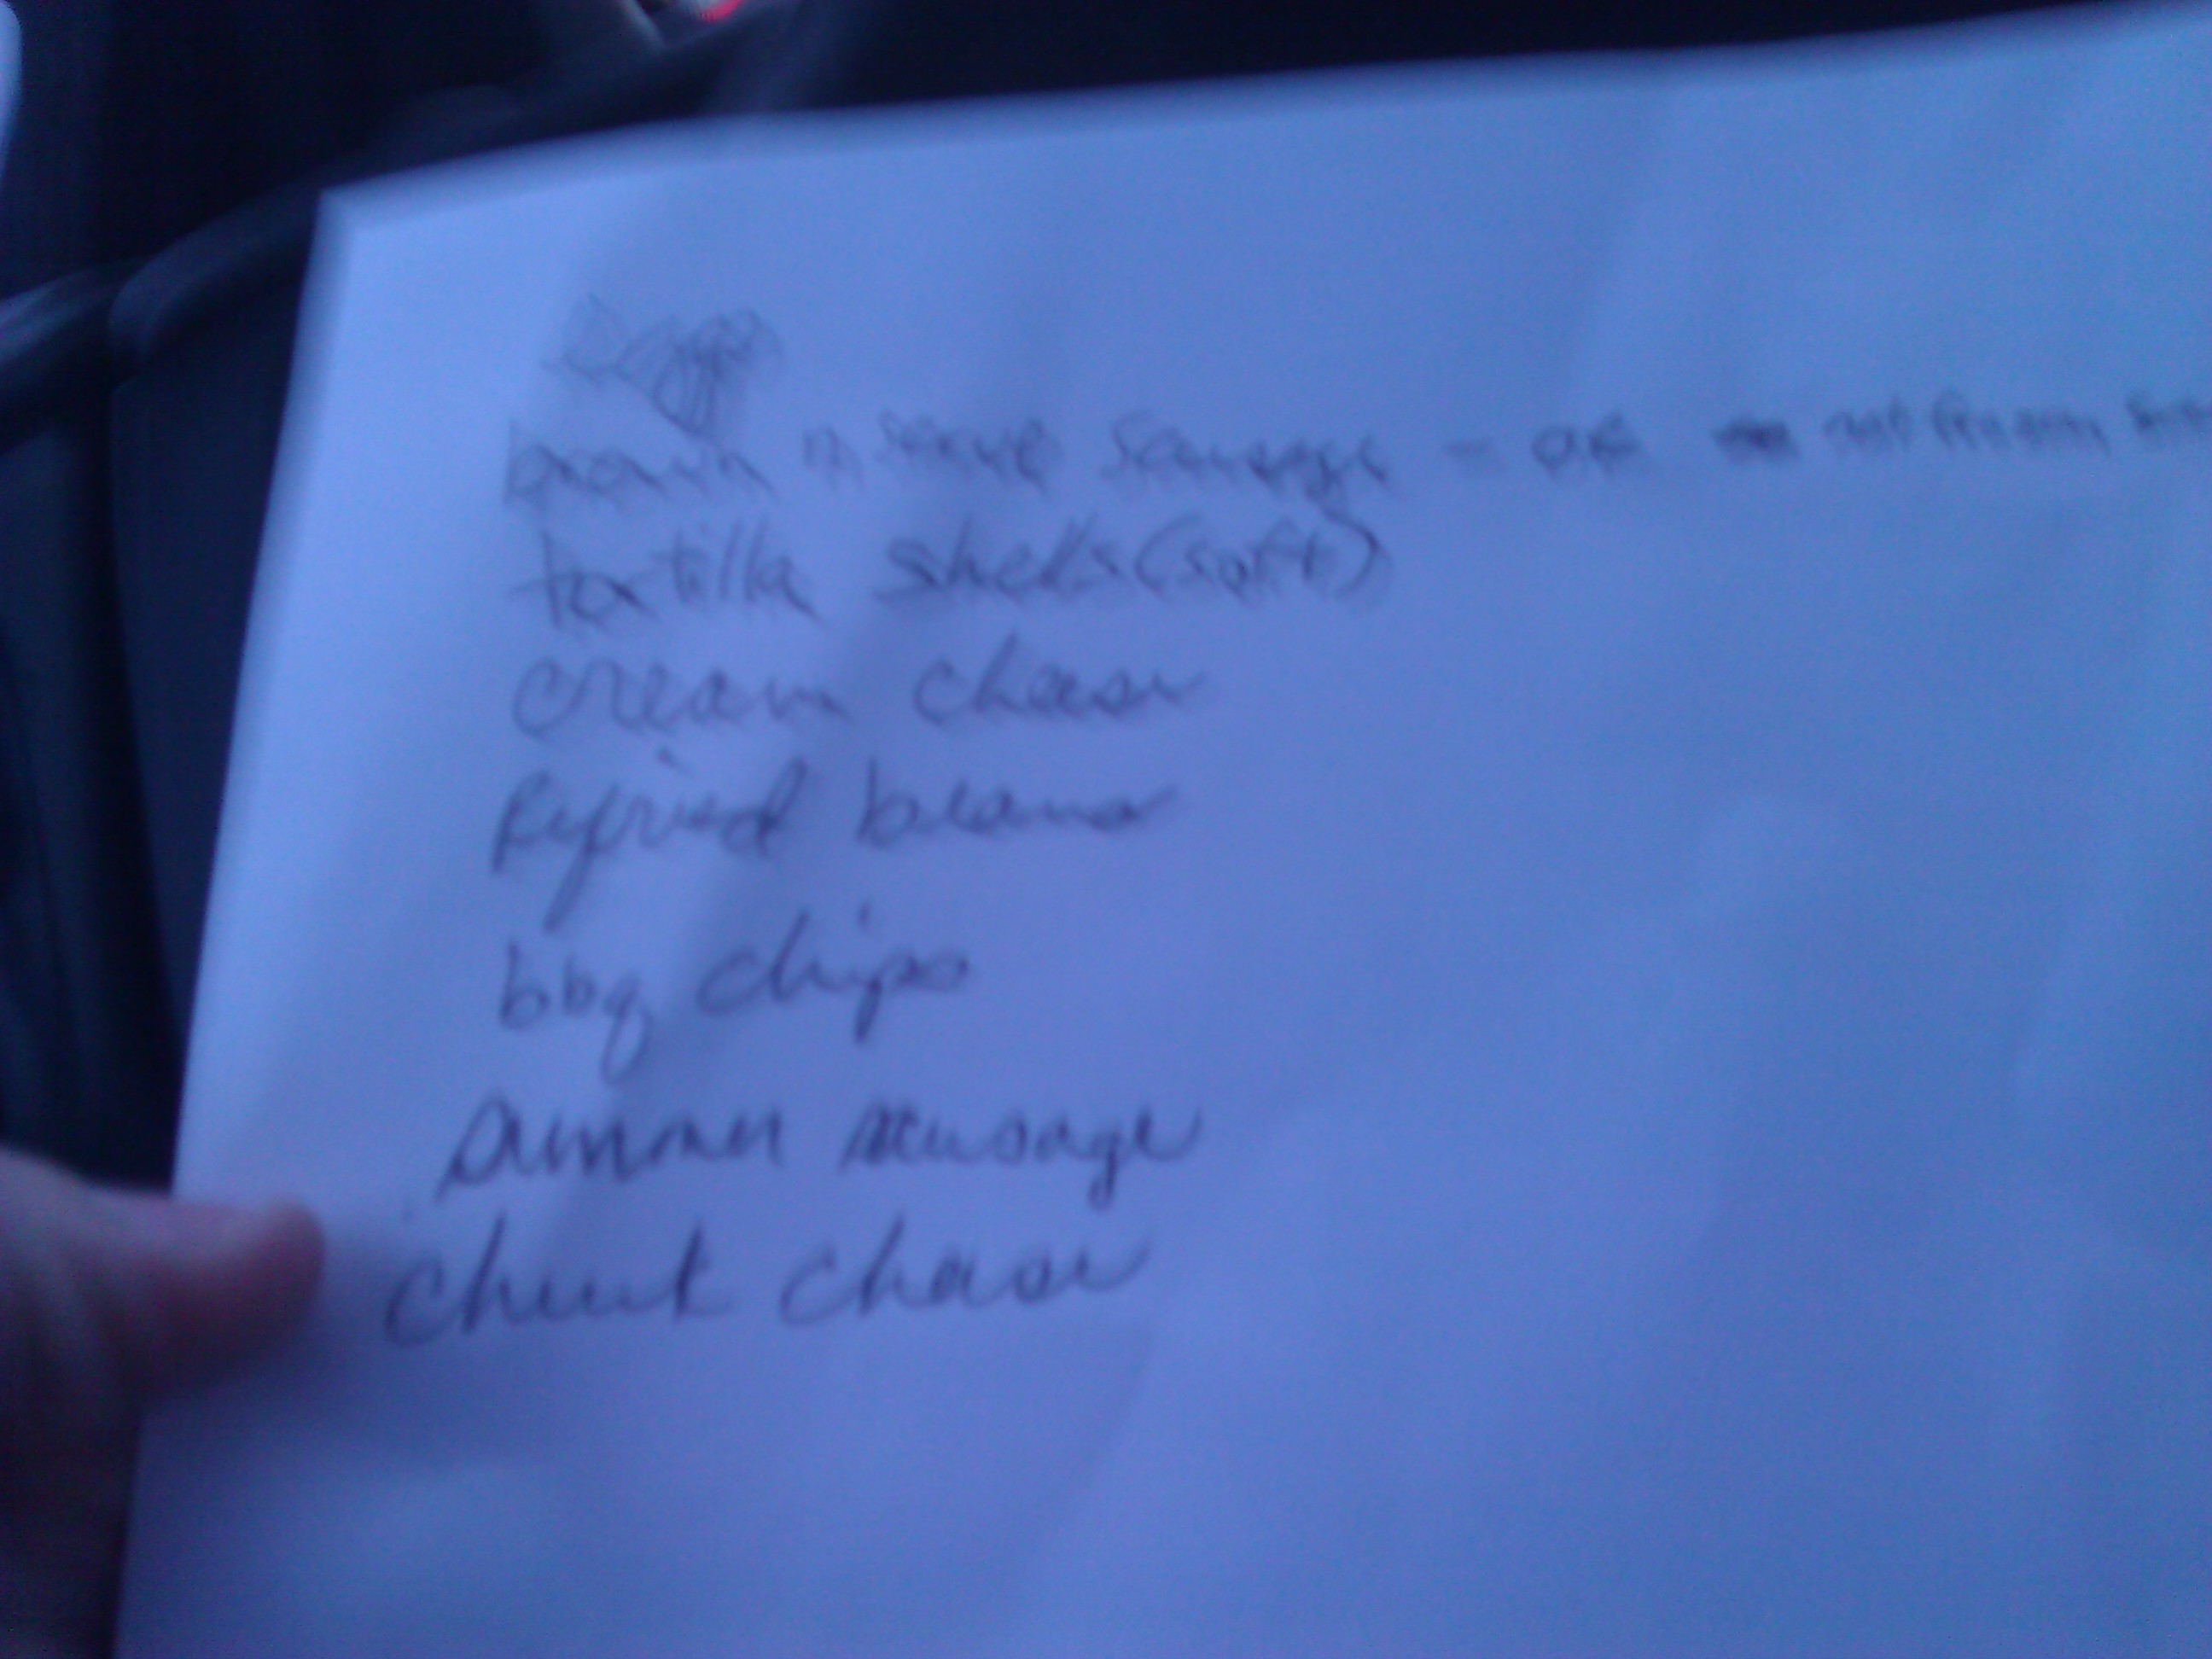 Eggs
brown n serve sausage - or not frozen
tortilla shells (soft)
cream cheese
Refried beans
bbq chips
summer sausage
chunk cheese